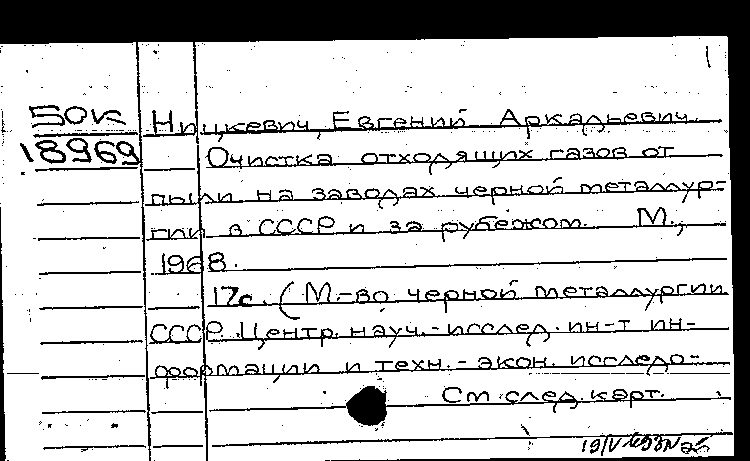 50К
18969
Ницкевич, Евгений Аркадьевич.
Очистка отходящих газов от
пыли на заводах черной металлур-
гии в СССР и за рубежом. М.,
1968.
17с. (М-во черной металлургии
СССР. Центр. науч.-исслед. ин-т ин-
формации и техн.-экон. исследо-
См след. карт.
19/V